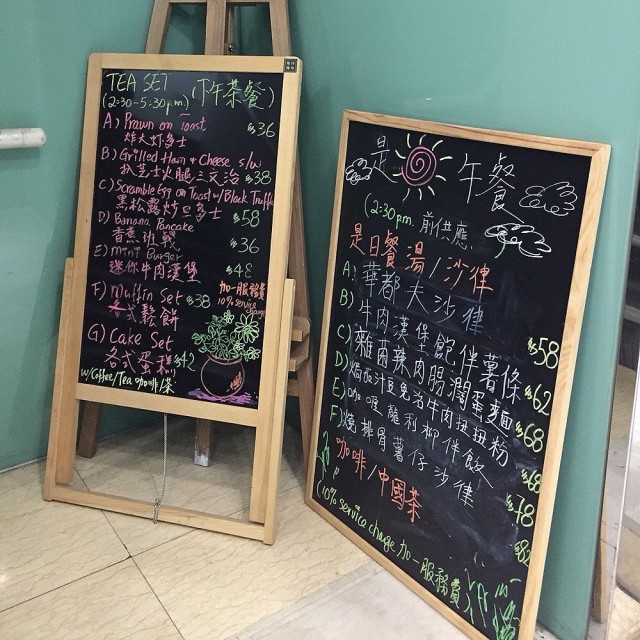 TEA SET (下午茶餐)
(2:30-5:30p.m.)
A) Prawn on Toast $36
炸大虾多士
B) Grilled Ham & Cheese s/w $38
芝士火腿三文治
C) Scramble Egg on Toast w/Black Truffle
黑松露炒旦多士 $58
D) Banana Pancake
香蕉班戟 $36
E) mini Burger
迷你牛肉漢堡 $48
F) Muffin Set $38
式鬆餅
加一服務費
10% service charge
G) Cake Set
各式蛋糕 $42
w/Coffee/Tea 咖啡/茶
是日午餐
(2:30pm. 前供應
是日餐湯/沙律
A) 華都夫沙律 $58
B) 牛肉漢堡飽伴薯條 $62
C) 雜菌辣肉腸潤蛋麵 $68
D) 汁豆免治牛肉扭扭粉 $68
E) 喱 利柳伴飯 $78
F) 燒排骨薯仔沙律 $82
咖啡/中國茶
(10% service charge 加一服務費)